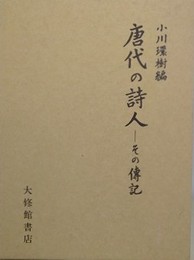 小川環樹編
唐代の詩人—その傳記
大修館書店